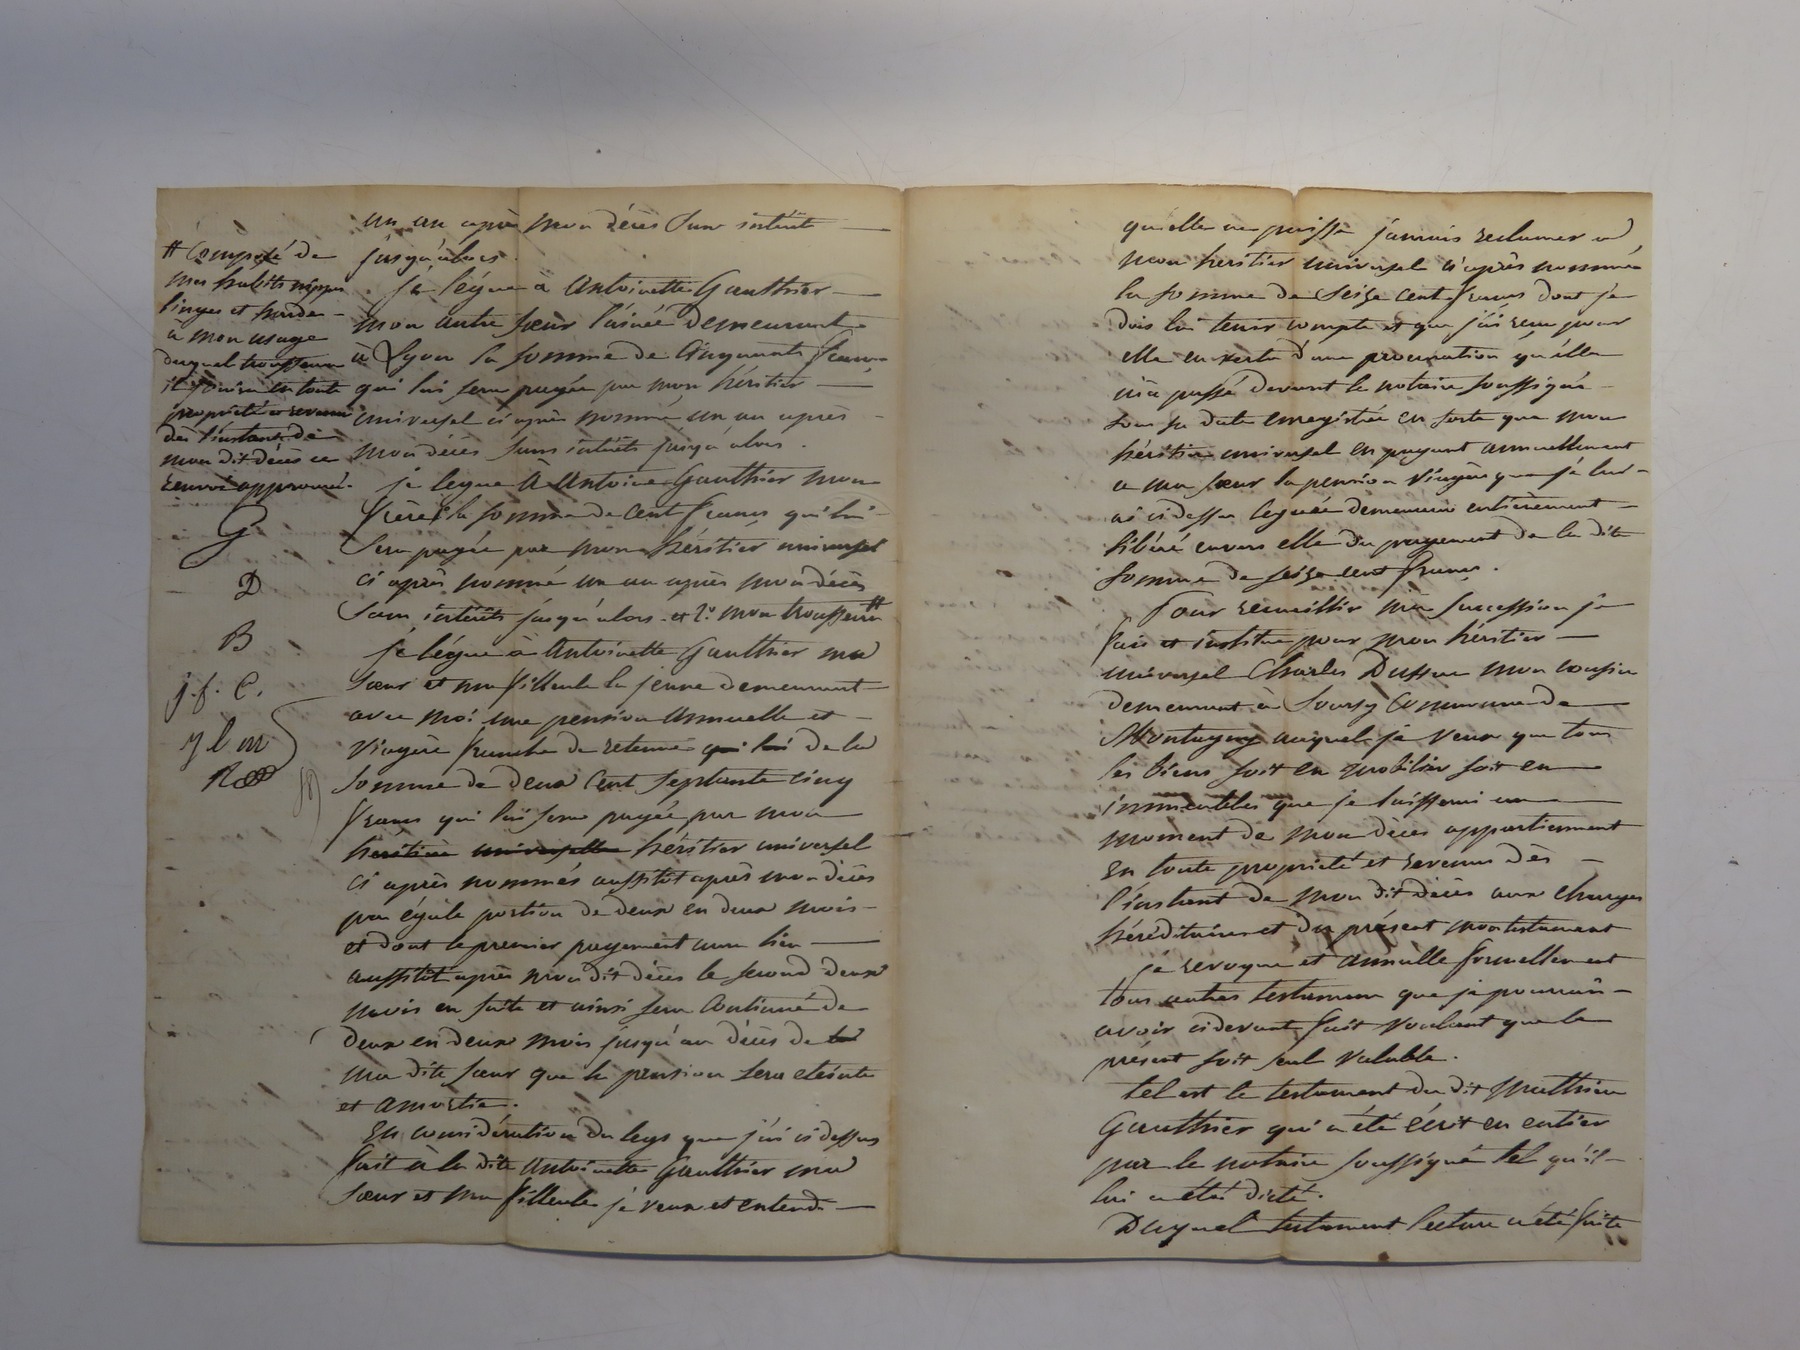 un an après mon décès sans intérêt
jusqu'alors.
je légue à Antoinette Gauthier
mon autre sœur l'ainée demeurant
à Lyon la somme de Cinquante francs
qui lui sera payée par mon héritier
universel ci après nommé, un an après
mon décès sans intérêts jusqu'alors.
je legue à Antoine Gauthier mon
frère la somme de Cent francs qui lui
sera payée par mon héritier universel
ci après nommé un an après mon décès
sans intérêts jusqu'alors. et 2° mon trousseau #
je légue à Antoinette Gauthier ma
sœur et ma filleule la jeune demeurant
avec moi une pension annuelle et
viagère franche de retenue qui lui de la
somme de deux Cent septante cinq
francs qui lui sera payée par mon
héritière universelle héritier universel
ci après nommés aussitôt après mon décès
par égale portion de deux en deux mois
et dont le premier payement aura lieu
aussitôt après mon dit décès le second deux
mois en suite et ainsi sera Continué de
deux en deux mois jusqu'au décès de la
ma dite sœur que la pension sera eteinte
et amortie.
En considération du legs que j'ai ci dessus
fait à la dite Antoinette Gauthier ma
sœur et ma filleule je veux et entend
# Composé de
mes habits nippes
linges et hardes
à mon usage
duquel trousseau
il jouira en toute
propriété et revenu
dès l'instant de
mon dit décès ce
renvoi approuvé.
G
D
B
j. f. C.
qu'elle ne puisse jamais reclamer à
mon heritier universel ci après nommé
la somme de Seize cent francs dont je
dois lui tenir compte et que j'ai reçu pour
elle en vertu d'une procuration qu'elle
m'a passé devant le notaire soussigné
sous sa date enregistrée en sorte que mon
héritier universel en payant annuellement
a ma sœur la pension viagère que je lui
ai ci dessus leguée demeurera entièrement
libéré envers elle du payement de la dite
somme de seize cent francs.
Pour recueillir ma succession je
fais et institue pour mon héritier
universel Charles Dussuc mon cousin
demeurant à Soursy Commune de
Montagny auquel je veux que tous
les biens soit en mobilier soit en
immeubles que je laisserai au
moment de mon décès appartiennent
en toute propriété et revenus dès
l'instant de mon dit décès aux charges
héréditaires et du présent mon testament
je revoque et annulle formellement
tous autres testamens que je pourrais
avoir ci devant fait voulant que le
présent soit seul valable.
tel est le testament du dit Mathieu
Gauthier qui a été écrit en entier
par le notaire soussigné tel qu'il
lui a été dicté.
Duquel testament lecture a été faite